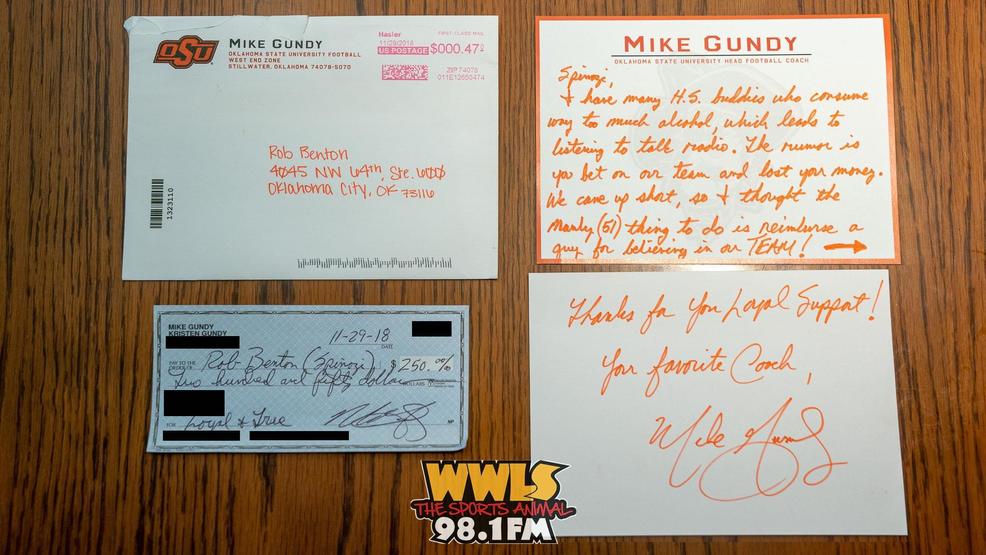 OSU
MIKE GUNDY
OKLAHOMA STATE UNIVERSITY FOOTBALL
WEST END ZONE
STILLWATER, OKLAHOMA 74078-5070
Hasler
FIRST-CLASS MAIL
11/29/2018
US POSTAGE $000.47⁰
ZIP 74078
011E12650474
Rob Benton
4045 NW 64th, Ste. 600
Oklahoma City, OK 73116
1323110
MIKE GUNDY
OKLAHOMA STATE UNIVERSITY HEAD FOOTBALL COACH
Spinozi,
I have many H.S. buddies who consume
way too much alcohol, which leads to
listening to talk radio. The rumor is
you bet on our team and lost your money.
We came up short, so I thought the
Manly (51) thing to do is reimburse a
guy for believing in our TEAM! →
MIKE GUNDY
KRISTEN GUNDY
11-29-18
DATE
PAY TO THE ORDER OF Rob Benton (Spinozi) $ 250.
Two hundred and fifty dollars DOLLARS
FOR Loyal & True
MP
Thanks for your Loyal Support!
Your favorite Coach,
Mike Gundy
WWLS
THE SPORTS ANIMAL
98.1FM